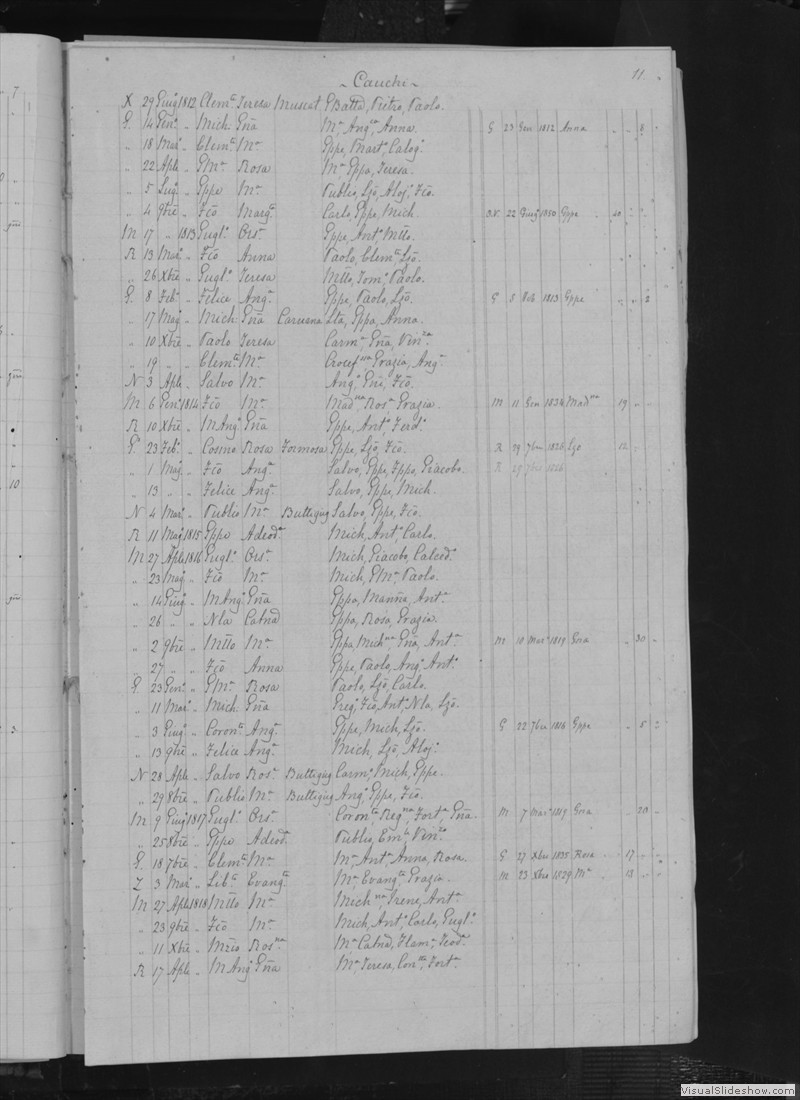 11.
~ Cauchi ~
X 29 Giug 1812 Clem.te Teresa Muscat GBatta, Pietro, Paolo.
G. 14 Gen.o " Mich. Gña M.a, Ang.ca, Anna. G 23 Gen 1812 Anna " " 8 "
" 18 Mar.o " Clem.te M.a Gppe, Mart.o, Calog.o
" 22 Aple " GM.a Rosa M.a Gppa, Teresa.
" 5 Lug.o " Gppe M.a Publio, Lzo, Aloj.o, Fco.
" 4 9bre " Fco Marg.ta Carlo, Gppe, Mich. 22 Giug 1850 Gppe 40 " "
M 17 " 1813 Gugl.o Ors.a Gppe, Ant.o, Mtto.
R 13 Mar.o " Fco Anna Paolo, Clem.te, Lzo.
" 26 Xbre " Gugl.o Teresa Mtto, Tom.o, Paolo.
G. 8 Feb.o " Felice Ang.a Gppe, Paolo, Lzo. G 5 Feb 1813 Gppe " " 2
" 17 Mag.o " Mich. Gña Caruana Lta, Gppa, Anna.
" 10 Xbre " Paolo Teresa Carm.a, Gña, Vin.za
" 19 " " Clem.te M.a Crocef.ssa, Grazia, Ang.a
N 3 Aple " Salvo M.a Ang.o, Gni, Fco.
M 6 Gen.o 1814 Fco M.a Mad.na, Ros.a, Grazia. M 11 Gen 1834 Mad.na 19 " "
R 10 Xbre " MAng.o Gña Gppe, Ant.o, Ferd.o
G. 23 Feb.o " Cosmo Rosa Formosa Gppe, Lzo, Fco. R 29 7bre 1826 Lzo 12 " "
" 1 Mag.o " Fco Ang.a Salvo, Gppe, Fppo, Giacobo. R 29 7bre 1826
" 13 " " Felice Ang.a Salvo, Gppe, Mich.
N 4 Mar.o " Publio M.a Buttigieg Salvo, Gppe, Fco.
R 11 Mag.o 1815 Gppe Adeod.a Mich., Ant.o, Carlo.
M 27 Aple 1816 Gugl.o Ors.a Mich, Giacobo, Calced.o
" 23 Mag.o " Fco M.a Mich, GM.a, Paolo.
" 14 Giug.o " MAng.o Gña Gppa, Marina, Ant.a
" 26 " " Nla Catña Gppa, Rosa, Grazia.
" 2 9bre " Mtto M.a Gppa, Mich.na, Gña, Ant.a M 10 Mar.o 1819 Gna " 30 "
" 27 " " Fco Anna Gppe, Paolo, Ang.o, Ant.o
G. 23 Gen.o " GM.a Rosa Paolo, Lzo, Carlo.
" 11 Mar.o " Mich. Gña Greg.o, Fco, Ant.o, Nla, Lzo.
" 3 Giug.o " Coron.to Ang.a Gppe, Mich, Lzo. G 22 7bre 1816 Gppe " 5 "
" 13 9bre " Felice Ang.a Mich, Lzo, Aloj.o
N 28 Aple " Salvo Ros.a Buttigieg Carm.o, Mich, Gppe.
" 29 8bre " Publio M.a Buttigieg Ang.o, Gppe, Fco.
M 9 Giug.o 1817 Gugl.o Ors.a Coron.ta, Reg.na, Fort.a, Gña. M 7 Mar.o 1819 Gna " 20 "
" 25 8bre " Gppe Adeod.a Publio, Em.le, Vin.zo
G. 18 7bre " Clem.te M.a M.a, Ant.a, Anna, Rosa. G 27 Xbre 1835 Rosa 17 " "
Z 3 Mar.o " Lib.to Evang.ta M.a Evang.ta, Grazia. M 23 Xbre 1829 M.a 13 " "
M 27 Aple 1818 Mtto M.a Mich.na, Irene, Ant.a
" 23 9bre " Fco M.a Mich, Ant.o, Carlo, Gugl.o
" 11 Xbre " Mzio Ros.na M.a Catña, Flam.a, Teod.a
R 17 Aple " MAng.o Gña M.a Teresa, Con.tta, Fort.a
VisualSlideshow.com